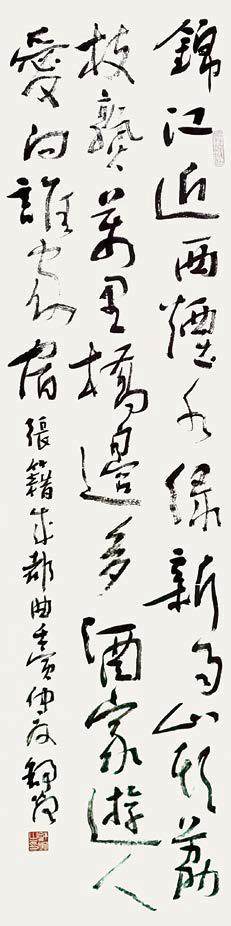 錦江近西煙水綠新雨山頭荔
枝熟萬里橋邊多酒家遊人
愛向誰家宿
張籍成都曲壬寅仲夏